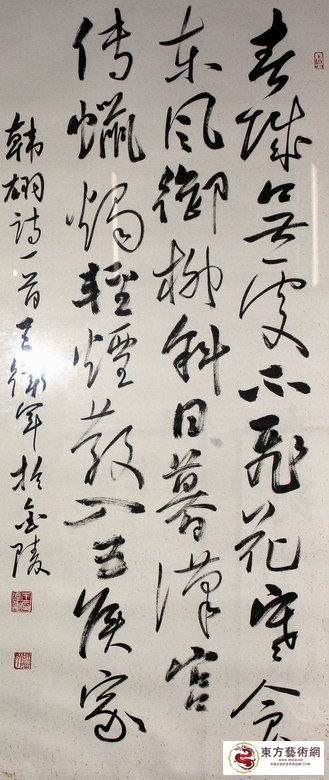 春城無處不飛花寒食
東風御柳斜日暮漢宮
傳蠟燭輕煙散入五侯家
韩翃詩一首王衛軍於金陵
東方藝術網